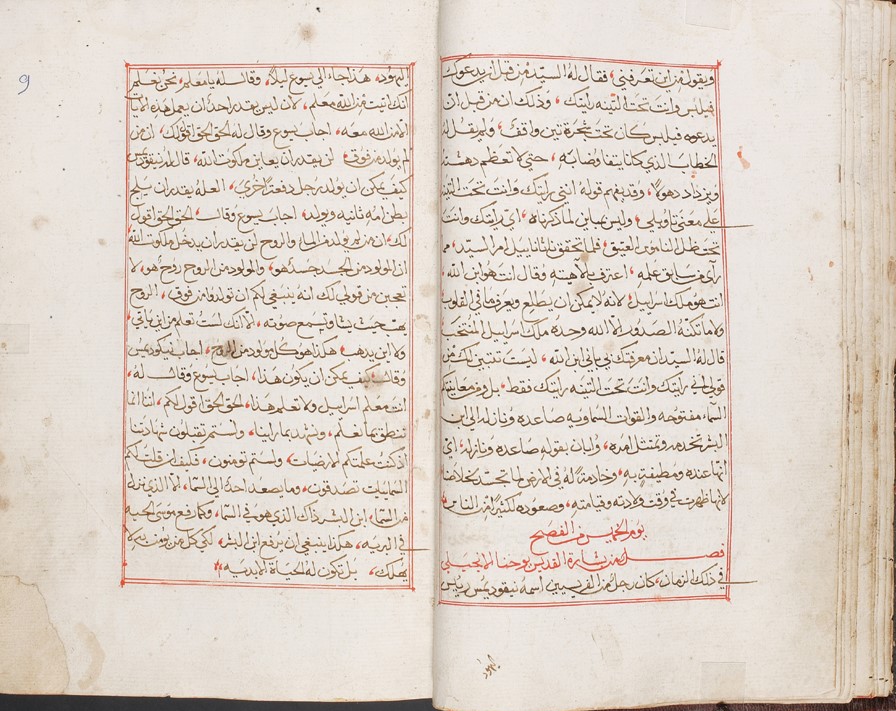 ويقول من اين تعرفني، فقال له السيد من قبل ان يدعوك
فيلبس وانت تحت التينه رايتك، وذلك ان من قبل ان
يدعوه فيلبس كان تحت شجرة تين واقفا، ولم يقل له
الخطاب الذي كلنا يتفاوضانه، حتي لا تعظم دهشته
ويزداد دهولا، وقد يفهم قوله انني رايتك وانت تحت التينه
علي معني تاويلي، وليس بمباين لما ذكرناه، اي رايتك وانت
تحت ظل الناموس العتيق، فلما تحقق نثانائيل امر السيد، مما
راى من سابق علمه، اعترف بلاهيته وقال انت هو ابن الله،
انت هو ملك اسراييل، لانه لا يمكن ان يطلع ويعرف ما في القلوب
ولا ما تكنه الصدور الا الله وحده ملك اسراييل المنتخب
قال له السيد ان معرفتك بي باني ابن الله، ليست تنبين لك من
قولي اني رايتك وانت تحت التينه رايتك فقط، بل ومن معاينتكم
السماء مفتوحه والقوات السماويه صاعده ونازله الي ابن
البشر تخدمه وتمتثل امره، وابان بقوله صاعده ونازله، اي
انها عنده ومطيفة به، وخادمة له في الارض لما تجسد لخلاصنا
لانها ظهرت في وقت ولادته وقيامته، وصعوده لكثيرا من الناس
يوم الخميس من الفصح
فصل من بشارة القديس يوحنا الانجيلي
في ذلك الزمان، كان رجل من الفريسيين اسمه نيقوديمس رييس
اليهود
9
اليهود، هذا جاء الي يسوع ليلا، وقال له يا معلم، نحن نعلم
انك اتيت من الله معلم، لان ليس يقدر احد ان يعمل هذه الايات
الا من الله معه، اجاب يسوع وقال له الحق الحق اقول لك، ان من
لم يولد من فوق، لن يقدر ان يعاين ملكوت الله، قال له نيقوديمس
كيف يمكن ان يولد رجل دفعة اخرى، العله يقدر ان يلج
بطن امه ثانيه ويولد، اجاب يسوع وقال، الحق الحق اقول
لك، ان من لم يولد من الماء والروح لن يقدر ان يدخل ملكوت الله
ان المولود من الجسد جسد هو، والمولود من الروح روح هو، لا
تعجبن من قولي لك انه ينبغي لكم ان تولدوا من فوق، الروح
يهب حيث يشا وتسمع صوته، الا انك لست تعلم من اين ياتي،
ولا اين يذهب، هكذا هو كل مولود من الروح، اجاب نيكوديمس
وقال، كيف يمكن ان يكون هذا، اجاب يسوع وقال له،
انت معلم اسراييل ولا تعلم هذا، الحق الحق اقول لكم، اننا انما
ننطق بما نعلم، ونشهد بما راينا، ولستم تقبلون شهادتنا
اذ كنت علمتكم الارضيات، ولستم تومنون، فكيف ان قلت لكم
السماييات تصدقون، وما يصعد احد الي السما، الا الذي نزل
من السما، ابن البشر ذاك الذي هو في السما، وكما رفع موسى الحيه
في البريه، هكذا ينبغي ان يرفع ابن البشر، لكي كل من يومن به لا
يهلك، بل تكون له الحياة الابديه